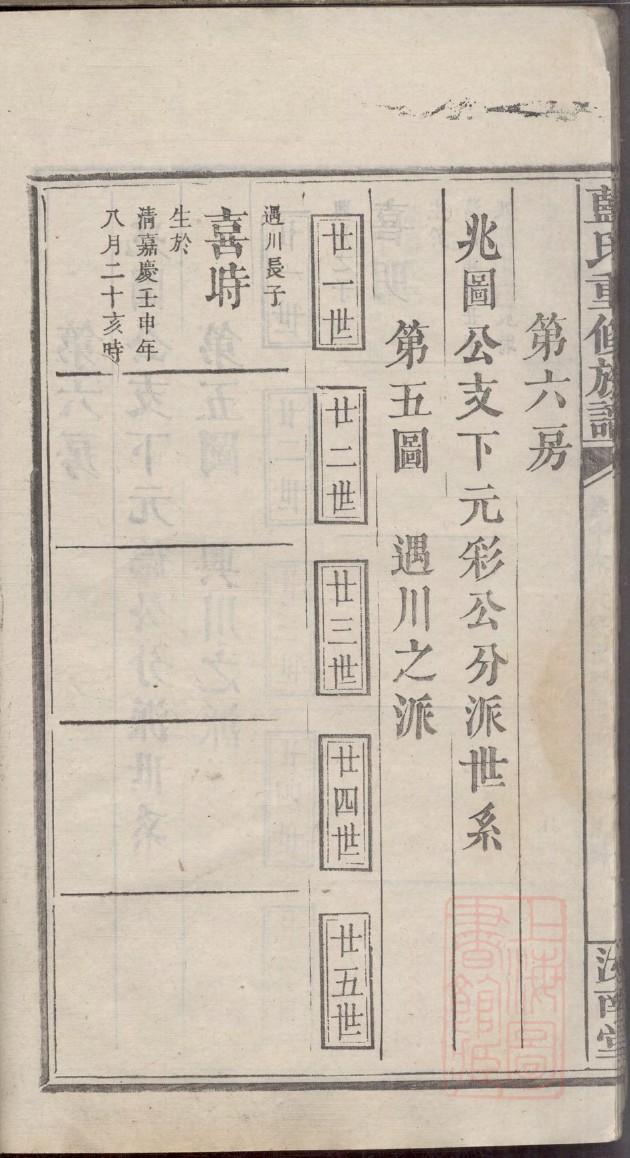 藍氏重修族譜
汝南堂
第六房
兆圖公支下元彩公分派世系
第五圖 遇川之派
廿一世
廿二世
廿三世
廿四世
廿五世
遇川長子
喜時
生於
清嘉慶壬申年
八月二十亥時
上海圖書館藏